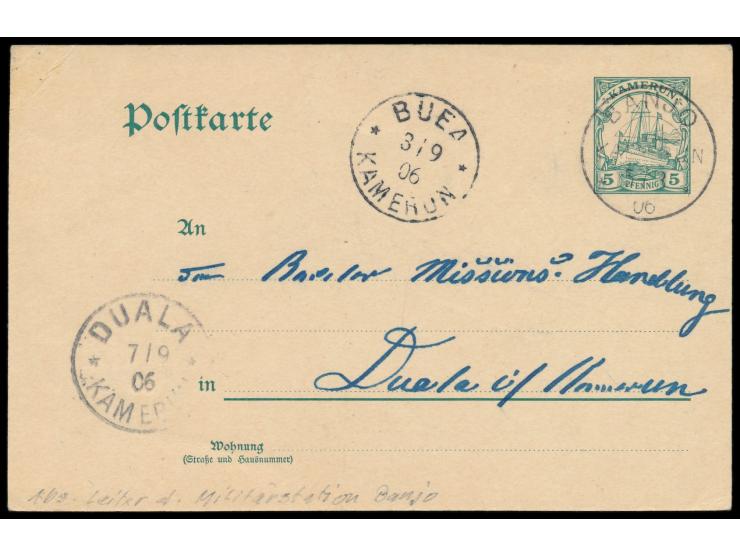 Postkarte
BUEA
3/9
06
KAMERUN
KAMERUN
BANJO
5 PFENNIG 5
06
An
Basler Missions-Handlung
DUALA
7/9
06
KAMERUN
in Duala i/ Kamerun
Wohnung
(Straße und Hausnummer)
Abs. Leiter d. Militärstation Banjo